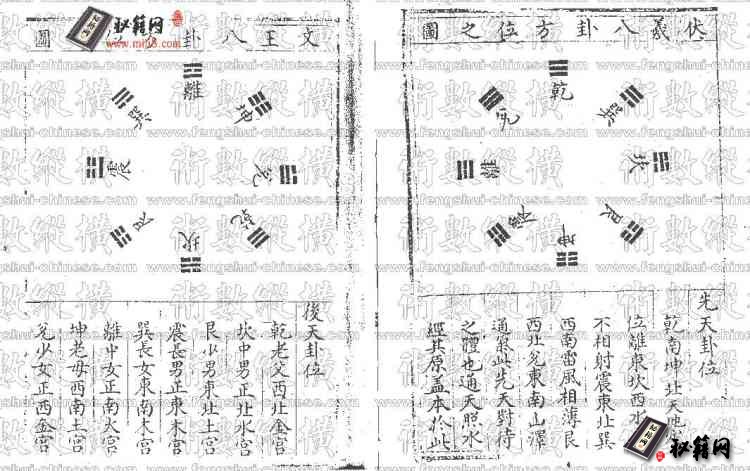 伏羲八卦方位之圖
乾
兌
巽
離
坎
震
艮
坤
先天卦位
乾南坤北天地
位離東坎西水
不相射震東北巽
西南雷風相薄艮
西北兌東南山澤
通氣此先天對待
之體也通天照水
經其原蓋本於此
文王八卦
圖
離
巽
坤
震
兌
艮
乾
坎
後天卦位
乾老父西北金宮
坎中男正北水宮
艮少男東北土宮
震長男正東木宮
巽長女東南木宮
離中女正南火宮
坤老母西南土宮
兌少女正西金宮
術數縱橫
www.fengshui-chinese.com
秘籍网
秘籍网